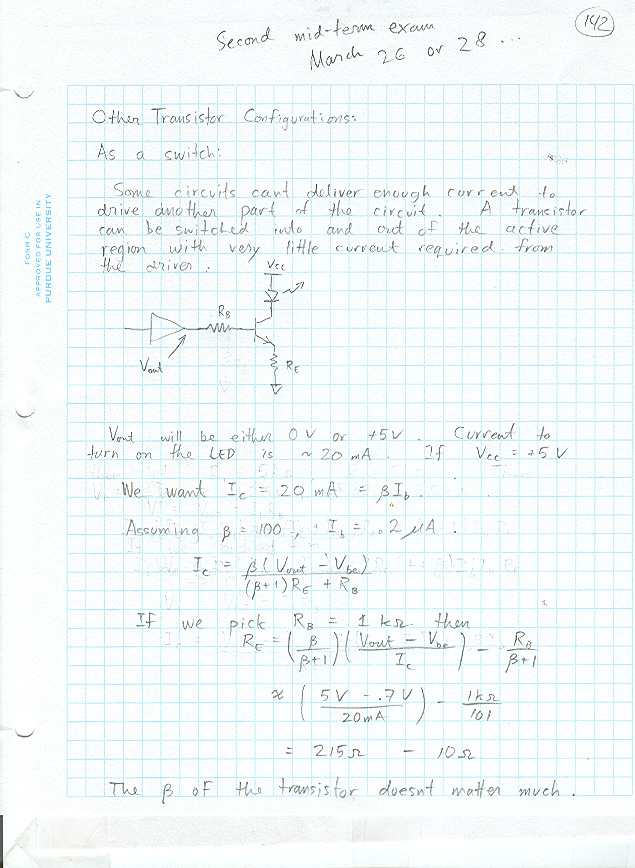 142
Second mid-term exam
March 26 or 28 ...
FORM C
APPROVED FOR USE IN
PURDUE UNIVERSITY
Other Transistor Configurations:
As a switch:
Some circuits cant deliver enough current to
drive another part of the circuit. A transistor
can be switched into and out of the active
region with very little current required from
the driver.
Vcc
RB
Vout
RE
Vout will be either 0V or +5V. Current to
turn on the LED is ~ 20 mA. If Vcc = +5V
We want Ic = 20 mA = βIb.
Assuming β = 100, Ib = .2 μA.
Ic = β(Vout - Vbe) / (β+1)RE + RB
If we pick RB = 1 kΩ then
RE = (β / β+1)(Vout - Vbe / Ic) - RB / β+1
≈ (5V - .7V / 20mA) - 1kΩ / 101
= 215Ω - 10Ω
The β of the transistor doesnt matter much.